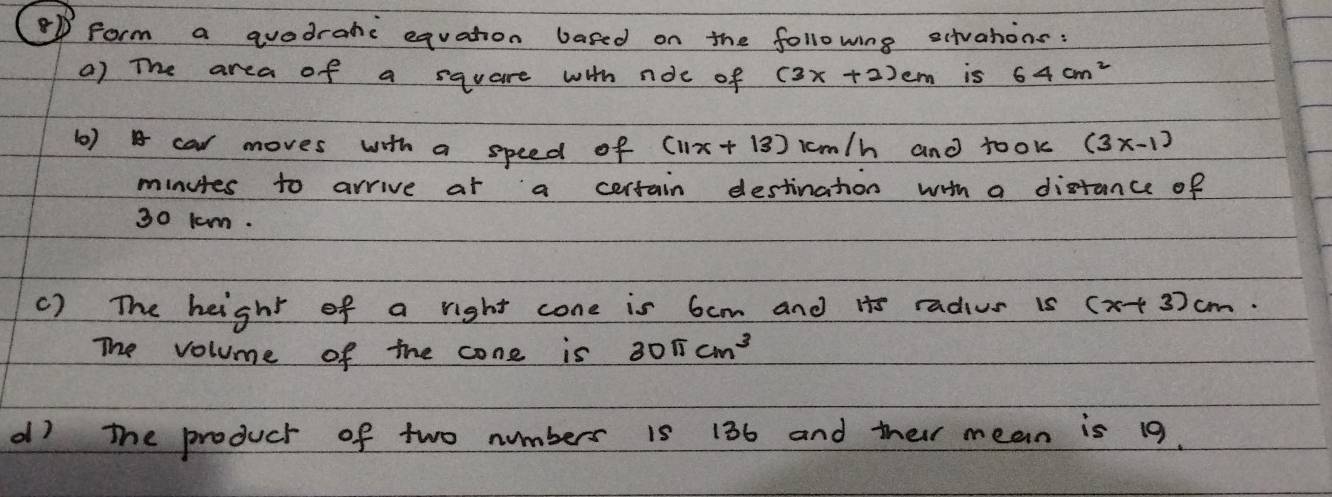 8) Form a quadratic equation based on the following situations:
a) The area of a square with side of (3x + 2) cm is 64 cm²
b) A car moves with a speed of (11x + 13) km/h and took (3x-1)
minutes to arrive at a certain destination with a distance of
30 km.
c) The height of a right cone is 6cm and its radius is (x+3) cm.
The volume of the cone is 30π cm³
d) The product of two numbers is 136 and their mean is 19.